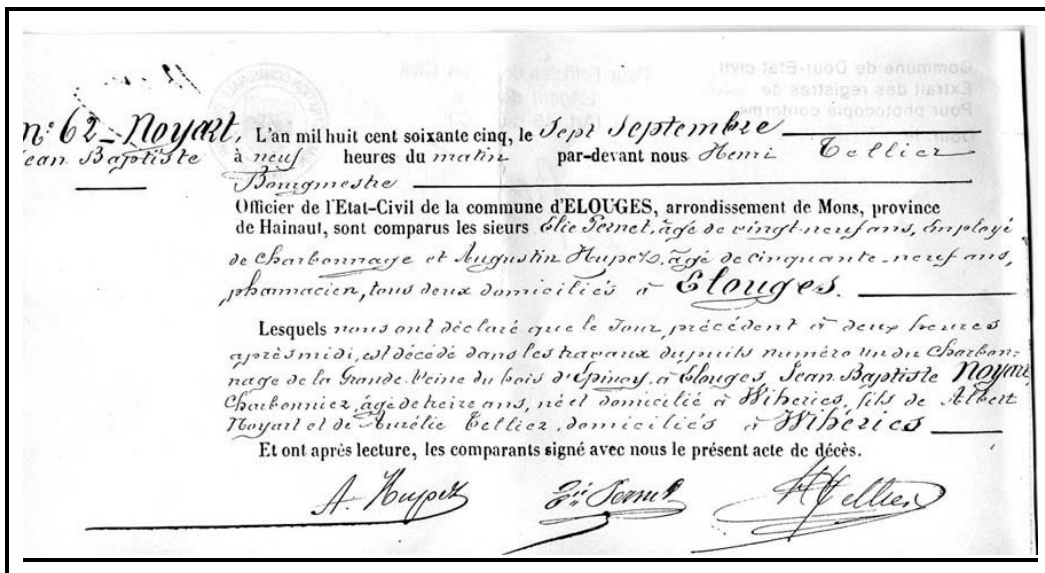 n° 62 - Noyart,
Jean Baptiste
L'an mil huit cent soixante cinq, le Sept Septembre
à neuf heures du matin par-devant nous Henri Tellier
Bourgmestre
Officier de l'Etat-Civil de la commune d'ELOUGES, arrondissement de Mons, province
de Hainaut, sont comparus les sieurs Elie Pernet, âgé de vingt-neuf ans, Employé
de Charbonnage et Augustin Hupez, âgé de cinquante-neuf ans,
pharmacien, tous deux domiciliés à Elouges.
Lesquels nous ont déclaré que le Jour précédent à deux heures
après midi, est décédé dans les travaux du puits numéro un du Charbon-
nage de la Grande Veine du bois d'Epinoy, à Elouges, Jean Baptiste Noyart
Charbonnier, âgé de treize ans, né et domicilié à Wihéries, fils de Albert
Noyart et de Aurélie Tellier, domiciliés à Wihéries
Et ont après lecture, les comparants signé avec nous le présent acte de décès.
A. Hupez Elie Pernet H Tellier
Commune de Dour-Etat civil,
Extrait des registres de
Pour photocopie conforme